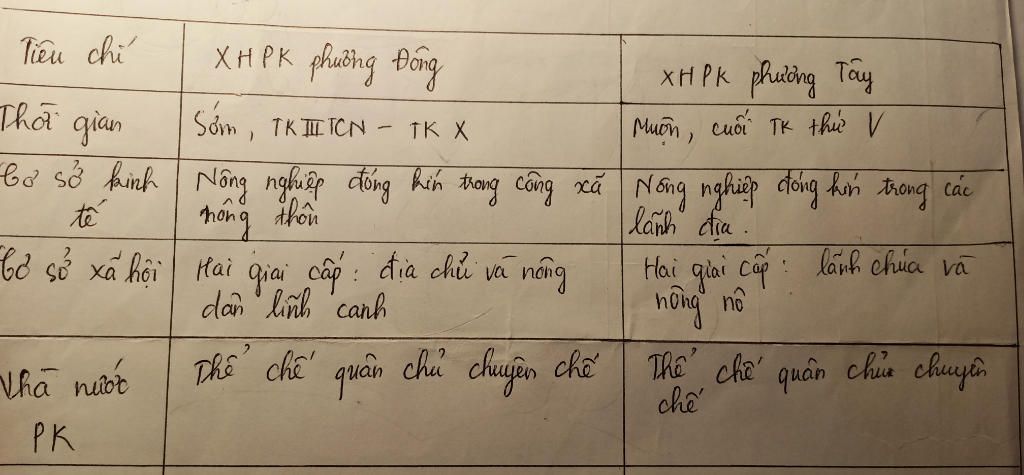 Tiêu chí
XHPK phương Đông
XHPK phương Tây
Thời gian
Sớm, TK III TCN - TK X
Muộn, cuối TK thứ V
Cơ sở kinh
tế
Nông nghiệp đóng kín trong công xã
nông thôn
Nông nghiệp đóng kín trong các
lãnh địa.
Cơ sở xã hội
Hai giai cấp: địa chủ và nông
dân lĩnh canh
Hai giai cấp: lãnh chúa và
nông nô
Nhà nước
PK
Thể chế quân chủ chuyên chế
Thể chế quân chủ chuyên
chế